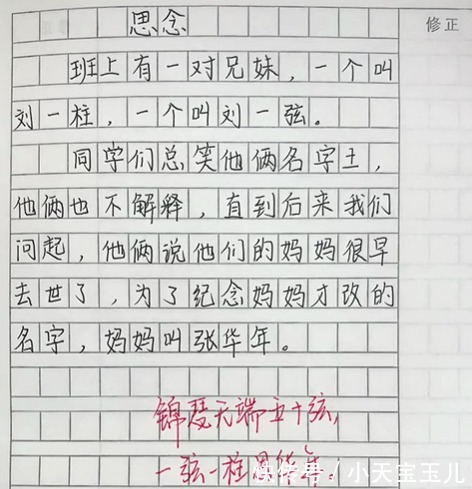 思念
修正
班上有一对兄妹，一个叫
刘一柱，一个叫刘一弦。
同学们总笑他俩名字土，
他俩也不解释，直到后来我们
问起，他俩说他们的妈妈很早
去世了，为了纪念妈妈才改的
名字，妈妈叫张华年。
锦瑟无端五十弦，
一弦一柱思华年。
快传号／小天宝玉儿